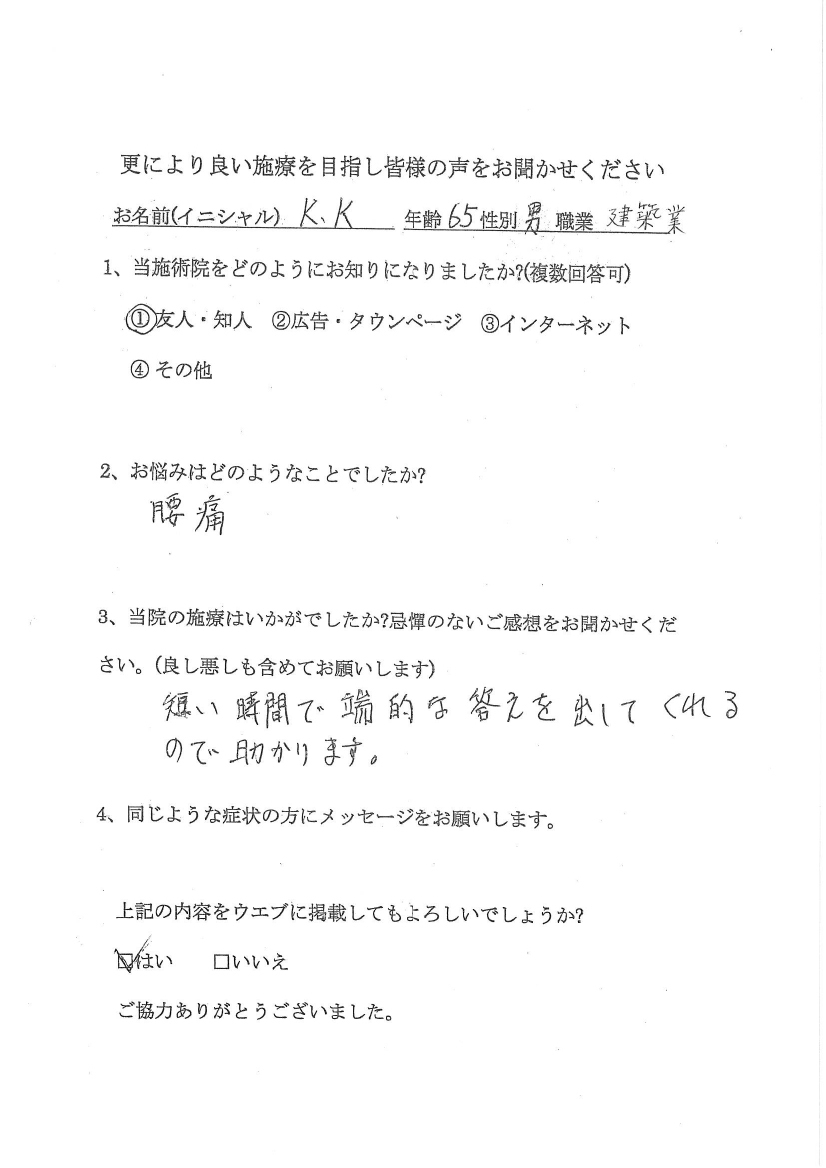 更により良い施療を目指し皆様の声をお聞かせください
お名前(イニシャル) K、K 年齢 65 性別 男 職業 建築業
1、当施術院をどのようにお知りになりましたか?(複数回答可)
①友人・知人 ②広告・タウンページ ③インターネット
④ その他
2、お悩みはどのようなことでしたか?
腰痛
3、当院の施療はいかがでしたか?忌憚のないご感想をお聞かせくだ
さい。(良し悪しも含めてお願いします)
短い時間で端的な答えを出してくれる
ので助かります。
4、同じような症状の方にメッセージをお願いします。
上記の内容をウエブに掲載してもよろしいでしょうか?
☑はい □いいえ
ご協力ありがとうございました。